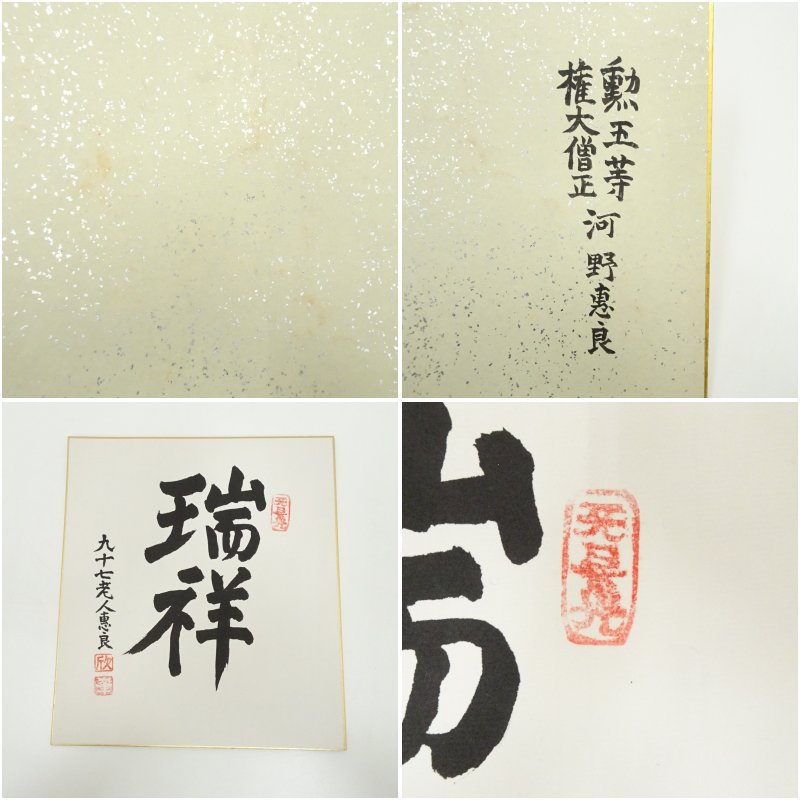 勲五等
権大僧正
河野惠良
瑞祥
九十七老人惠良